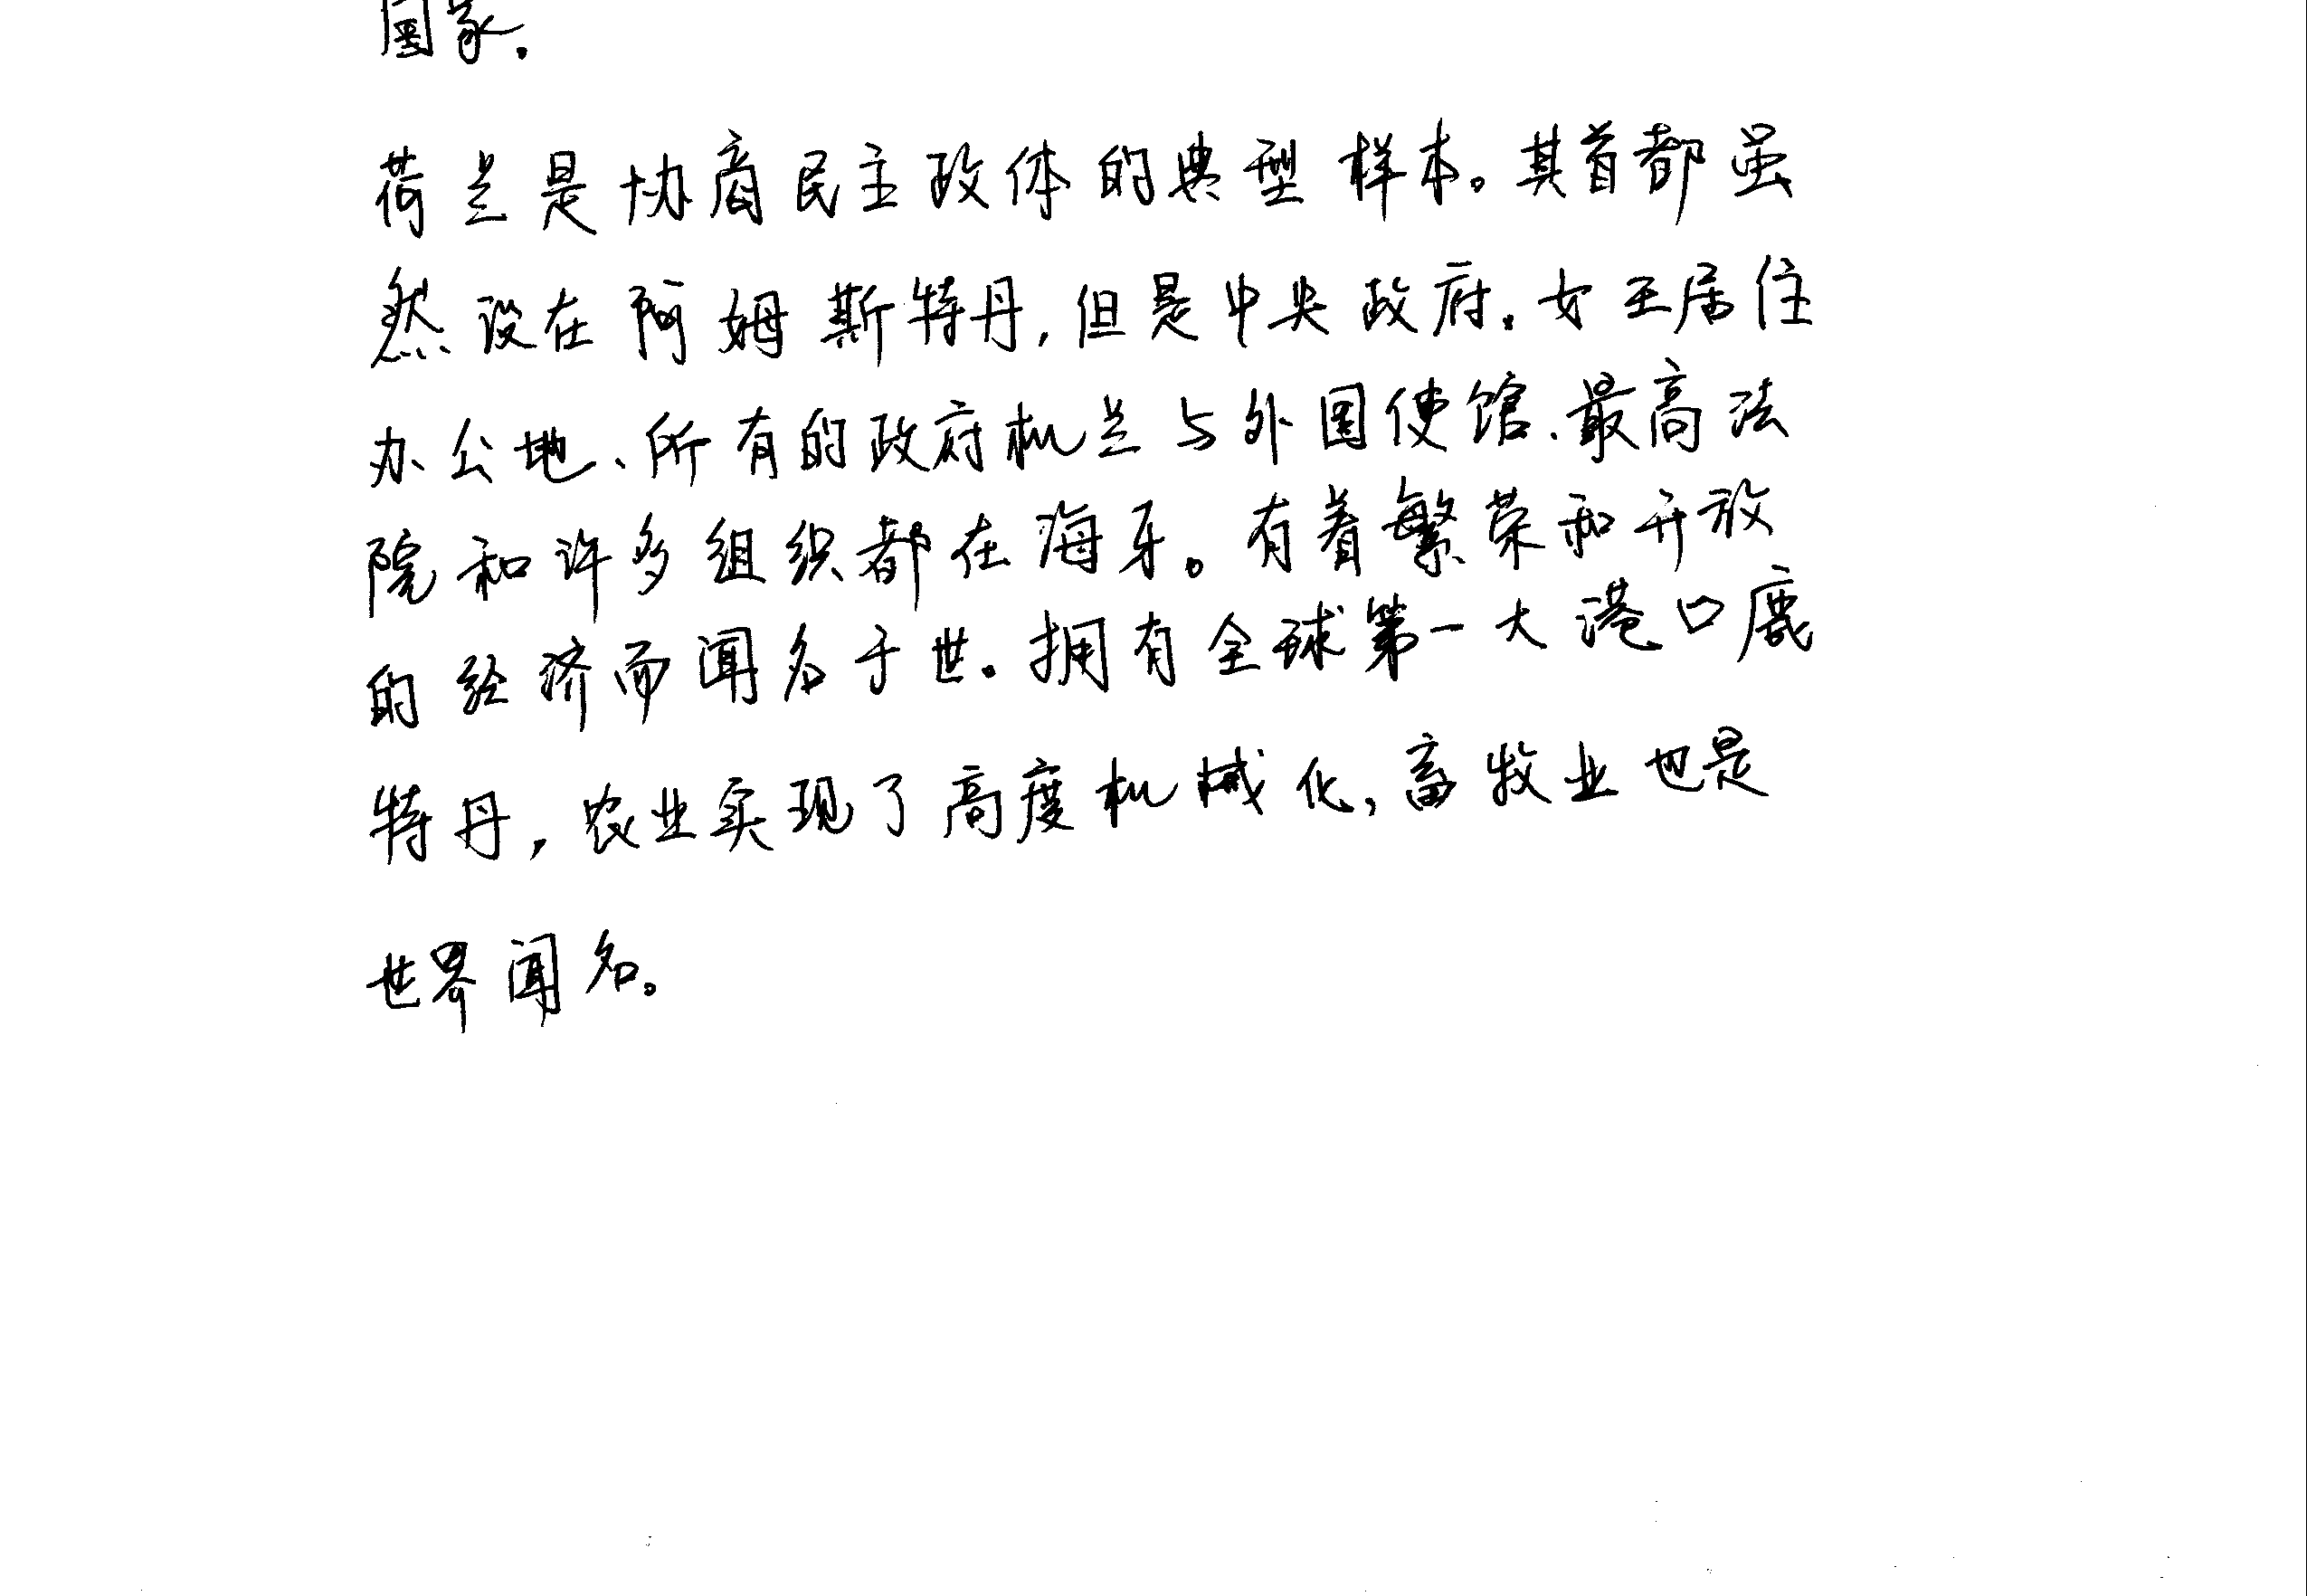 国家.
荷兰是协商民主政体的典型样本。其首都虽
然设在阿姆斯特丹,但是中央政府.女王居住
办公地、所有的政府机兰与外国使馆.最高法
院和许多组织都在海牙。有着繁荣和开放
的经济而闻名于世。拥有全球第一大港口鹿
特丹,农业实现了高度机械化,畜牧业也是
世界闻名。